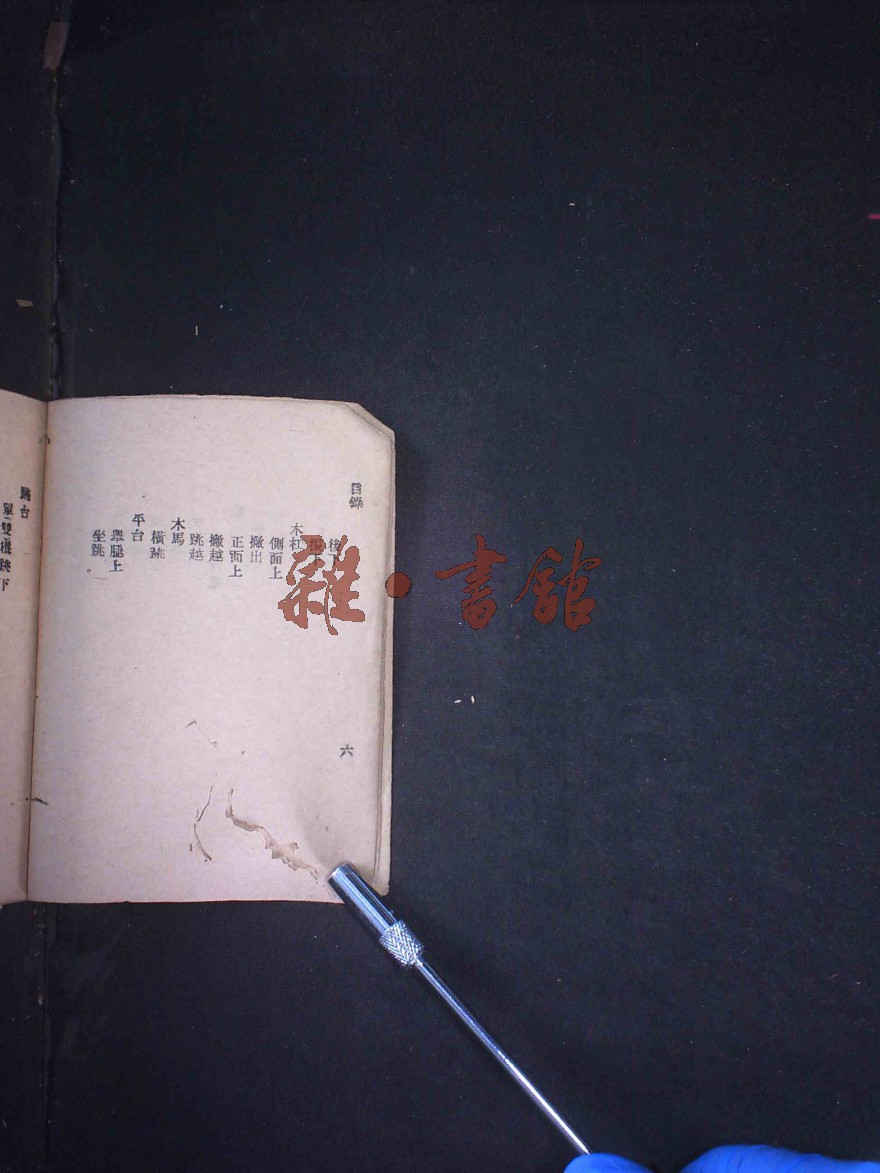 目錄
後下
振下
木杠
側面上
撇出
正面上
撇越
跳越
木馬
橫跳
平台
舉腿上
坐跳
六
跳台
單雙槓跳下
雜·書館